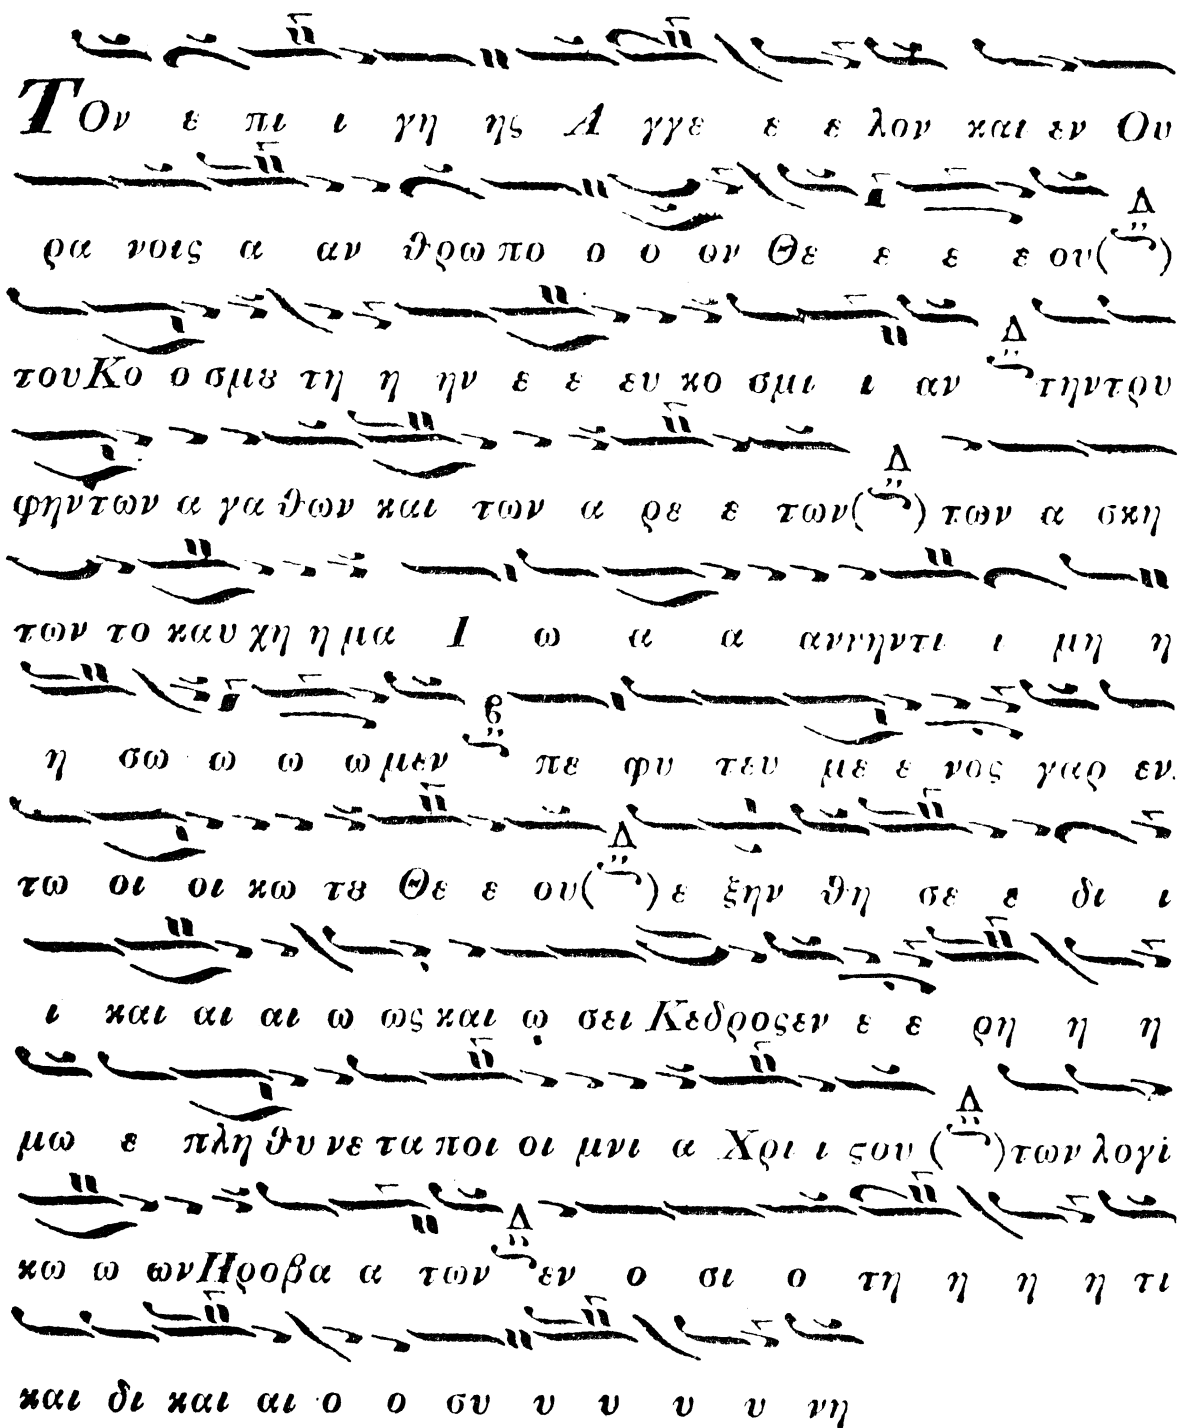 ΤΟν ε πι ι γη ης Α γγε ε ε λον και εν Ου
ρα νοις α αν θρω πο ο ο ον Θε ε ε ε ου (Δ)
του Κο ο σμȣ τη η ην ε ε ευ κο σμι ι αν Δ την τρυ
φην των α γα θων και των α ρε ε των (Δ) των α σκη
των το καυ χη η μα Ι ω α α αν την τι ι μη η
η σω ω ω ω μεν πε φυ τευ με ε νος γαρ εν
τω οι οι κω τȣ Θε ε ου (Δ) ε ξην θη σε ε δι ι
ι και αι αι ω ως και ω σει Κεδρος εν ε ε ρη η η
μω ε πλη θυ νε τα ποι οι μνι α Χρι ι ϛου (Δ) των λογι
κω ω ων Προβα α των Δ εν ο σι ο τη η η η τι
και δι και αι ο ο συ υ υ υ υ νη